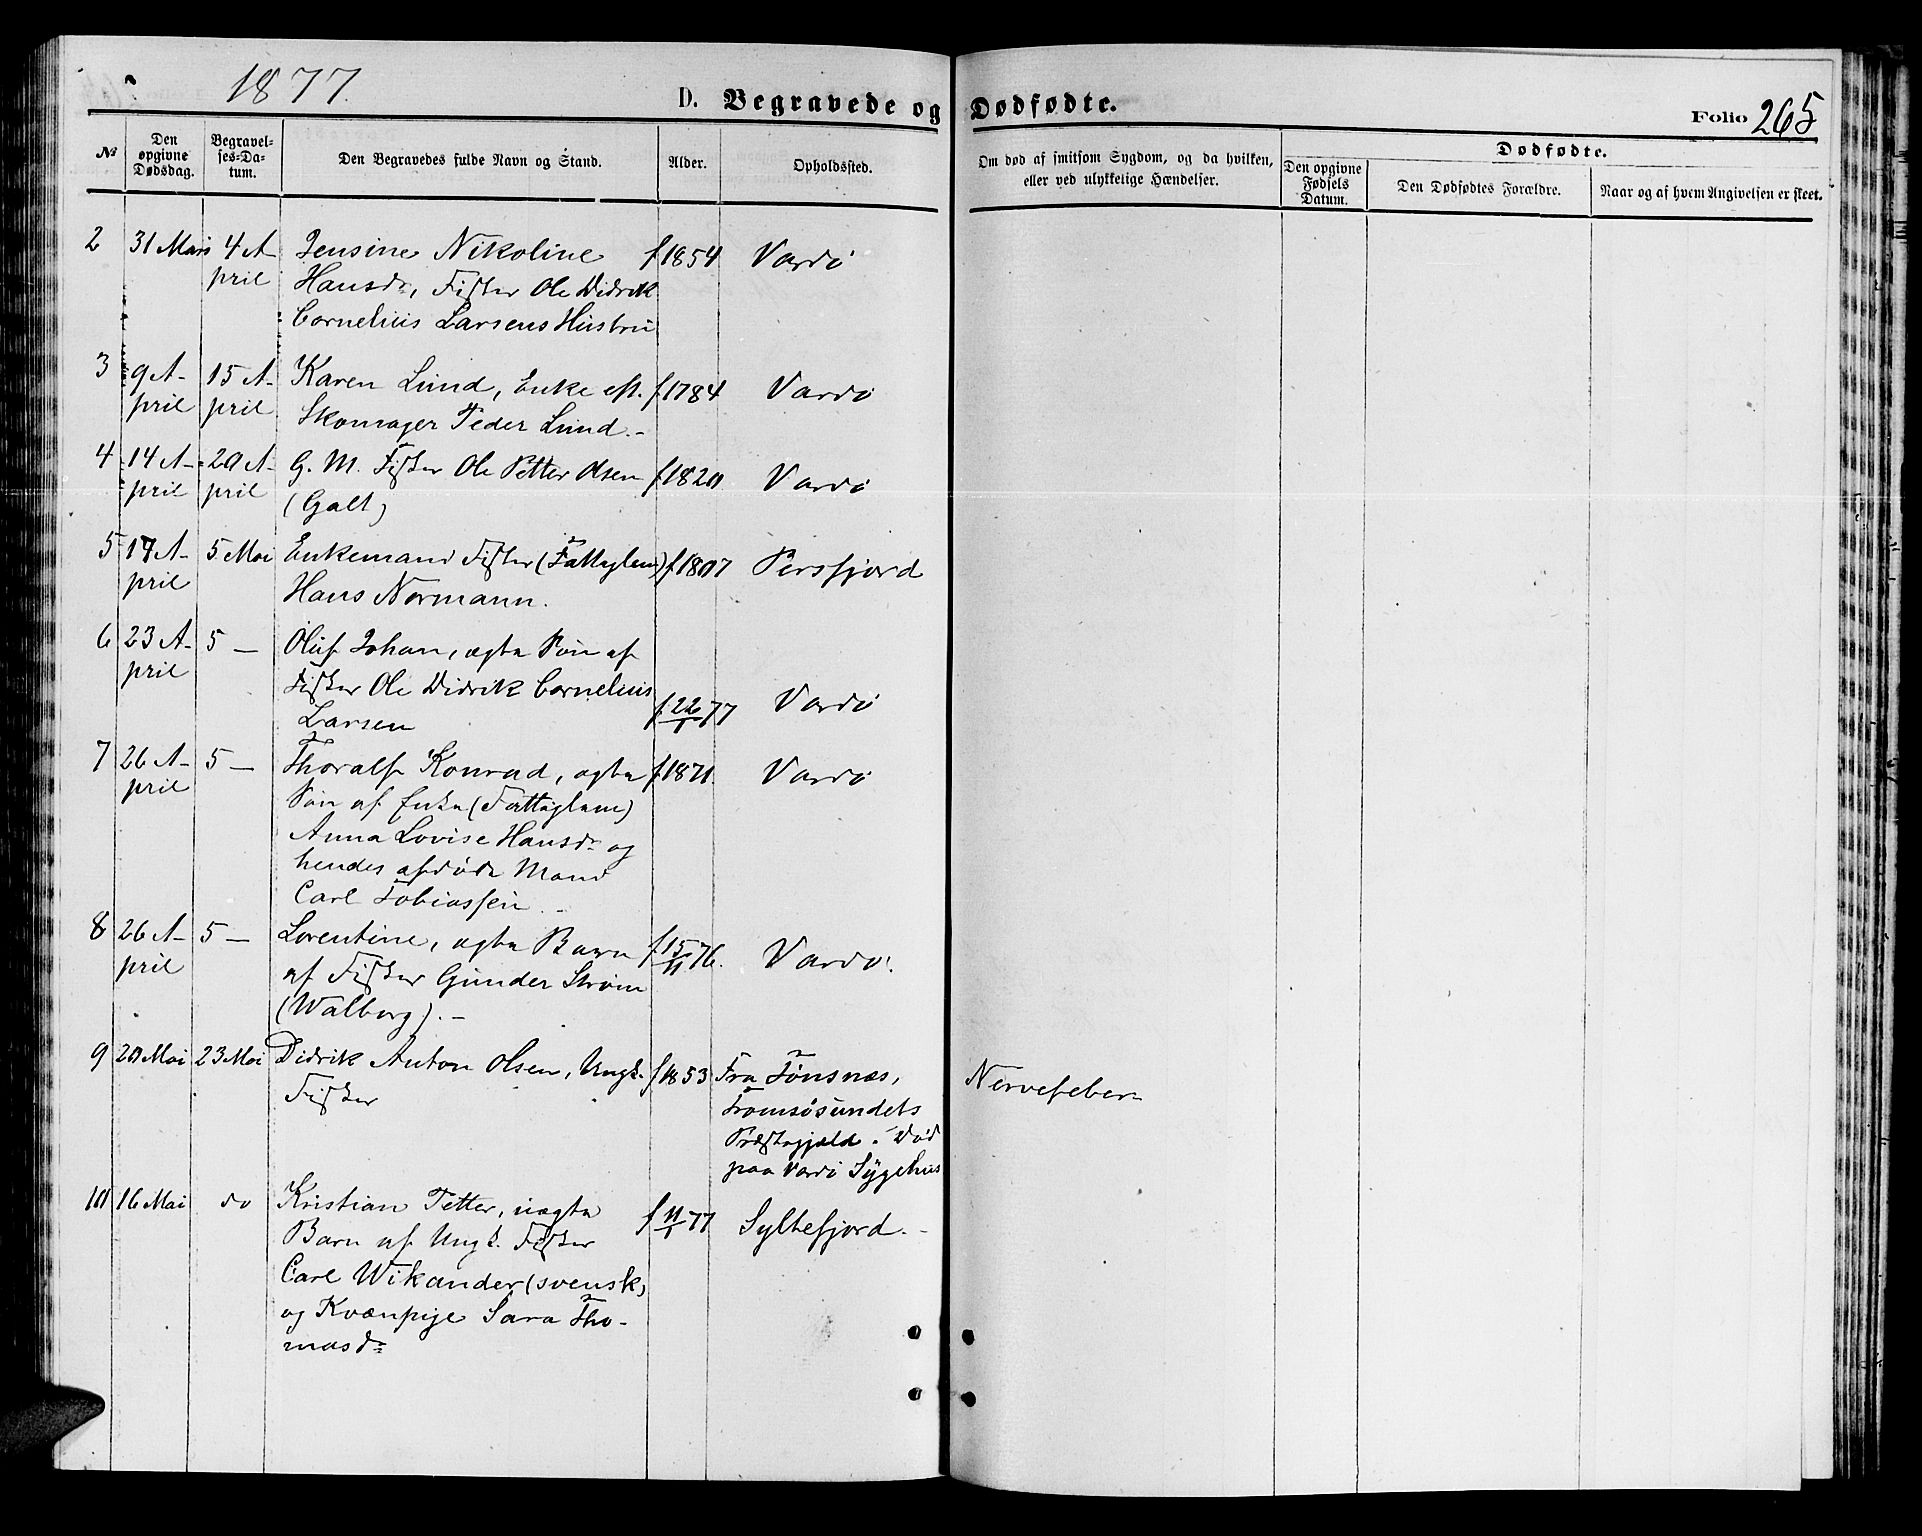 1877.
D. Begravede og Dødfødte.
Folio 265
№
Den opgivne Dødsdag.
Begravelses-Datum.
Den Begravedes fulde Navn og Stand.
Alder.
Opholdssted.
Om død af smitsom Sygdom, og da hvilken,
eller ved ulykkelige Hændelser.
Dødfødte.
Den opgivne Fødsels Datum.
Den Dødfødtes Forældre.
Naar og af hvem Angivelsen er skeet.
2 31 Mars 4 A- Jensine Nikoline f 1854 Vardø
pril Hansdr, Fisker Ole Didrik
Cornelius Larsens Hustru
3 9 A- 15 A- Karen Lund, Enke eft. f 1784 Vardø
pril pril Skomager Peder Lund.-
4 14 A- 20 A- G. M. Fisker Ole Petter Olsen f 1820 Vardø
pril pril (Galt)
5 17 A- 5 Mai Enkemand Fisker (Fattiglem) f 1807 Persfjord
pril Hans Normann.
6 23 A- 5 — Oluf Johan, ægte Søn af
pril Fisker Ole Didrik Cornelius
Larsen f 22/1 77 Vardø
7 26 A- 5 — Thoralf Konrad, ægte f 1871. Vardø
pril Søn af Enke (Fattiglem)
Anna Lovise Hansdr og
hendes afdøde Mand
Carl Tobiassen.-
8 26 A- 5 — Lorentine, ægte Barn f 15/11 76. Vardø.
pril af Fisker Gunder Strøm
(Walborg).-
9 20 Mai 23 Mai Didrik Anton Olsen, Ungk. f 1853 Fra Tønsnæs, Nervefeber
Fisker Tromsøsundets
Præstegjæld. Død
paa Vardø Sygehus
10 16 Mai do Kristian Petter, uægte f 11/1 77 Syltefjord.-
Barn af Ungk. Fisker
Carl Wikander (svensk)
og Kvænpige Sara Tho-
masdr